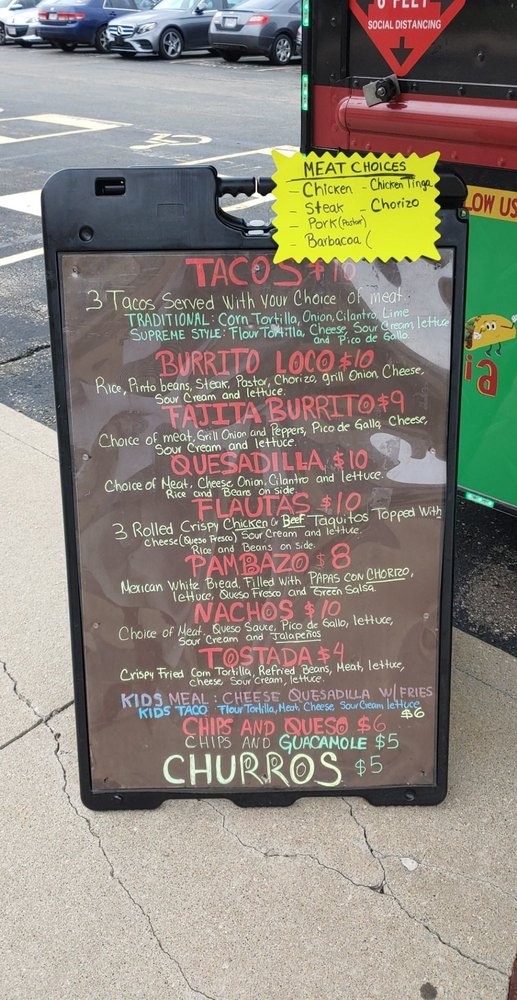 6 FEET
SOCIAL DISTANCING
MEAT CHOICES
- Chicken - Chicken Tinga
- Steak - Chorizo
- Pork (Pastor)
- Barbacoa (
LOW US
ia
TACOS $10
3 Tacos Served With Your Choice of meat.
TRADITIONAL: Corn Tortilla, Onion, Cilantro, Lime
SUPREME STYLE: Flour Tortilla, Cheese, Sour Cream, lettuce
and Pico de Gallo.
BURRITO LOCO $10
Rice, Pinto beans, Steak, Pastor, Chorizo, grill Onion, Cheese,
Sour Cream and lettuce.
FAJITA BURRITO $9
Choice of meat, Grill Onion and Peppers, Pico de Gallo, Cheese,
Sour Cream and lettuce.
QUESADILLA $10
Choice of Meat, Cheese, Onion, Cilantro and lettuce.
Rice and Beans on side.
FLAUTAS $10
3 Rolled Crispy Chicken Or Beef Taquitos Topped With
cheese (Queso Fresco) Sour Cream and lettuce.
Rice and Beans on side.
PAMBAZO $8
Mexican White Bread, Filled With PAPAS CON CHORIZO,
lettuce, Queso Fresco and Green Salsa.
NACHOS $10
Choice of Meat, Queso Sauce, Pico de Gallo, lettuce,
Sour Cream and Jalapeños
TOSTADA $4
Crispy Fried Corn Tortilla, Refried Beans, Meat, lettuce,
Cheese Sour Cream, lettuce.
KIDS MEAL: CHEESE QUESADILLA W/FRIES
KIDS TACO Flour Tortilla, Meat, Cheese Sour Cream lettuce
$6
CHIPS AND QUESO $6
CHIPS AND GUACAMOLE $5
CHURROS $5